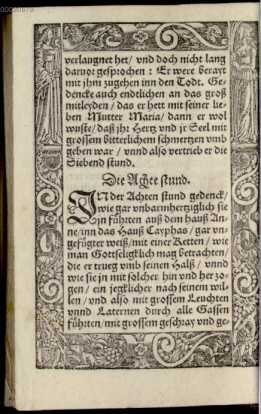 verlaugnet het / vnd doch nicht lang
daruor gesprochen : Er were berayt
mit jhm zugehen inn den Todt. Ge-
dencke auch endtlichen an das groß
mitleyden / das er hett mit seiner lie-
ben Mutter Maria / dann er wol
wuste / daß jhr Hertz vnd jr Seel mit
grossem bitterlichem schmertzen vmb
geben war / vnnd also vertrieb er die
Siebend stund.
Die Achte stund.
IN der Achten stund gedenck /
wie gar vnbarmhertziglich sie
jn führten auß dem hauß An-
ne / inn das Hauß Cayphas / gar vn-
gefügter weiß / mit einer Ketten / wie
man Gottseligklich mag betrachten /
die er trueg vmb seinen Halß / vnnd
wie sie jn mit solcher hin vnd her zo-
gen / ein jegklicher nach seinem wil-
len / vnd also mit grossem Leuchten
vnnd Laternen durch alle Gassen
führten / mit grossem geschray vnd ge-